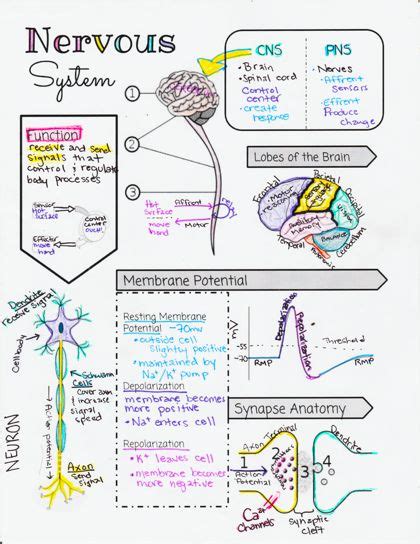 Nervous
System
CNS
• Brain
• Spinal cord
Control
center
• create
response
PNS
• Nerves
• Affrent
Sensors
• Effrent
Produce
change
1
2
3
Function
receive and send
signals that
control & regulate
body processes
Sensor
Hot
Surface
Control
center
ouch!
Effector
move
hand
Hot
Surface
Affrent
move
hand
Motor
Lobes of the Brain
Frontal
• Motor
Temporal
Occipital
Cerebellum
Balance
Memory
Membrane Potential
Resting Membrane
Potential -70mv
• outside cell
slightly positive
• maintained by
Na⁺/K⁺ pump
Depolarization
membrane becomes
more positive
• Na⁺ enters cell
Repolarization
• K⁺ leaves cell
• membrane becomes
more negative
mV
-55
-70
RMP
Depolarization
Repolarization
Threshold
RMP
Dendrite
receive signal
Cell body
Schwann
Cells
Cover axon
& increase
signal
speed
Action potential
Axon
Send
signal
NEURON
Synapse Anatomy
Axon Terminal
Dendrite
1
Action
Potential
2
3
4
Ca²⁺
Channels
Synaptic
cleft